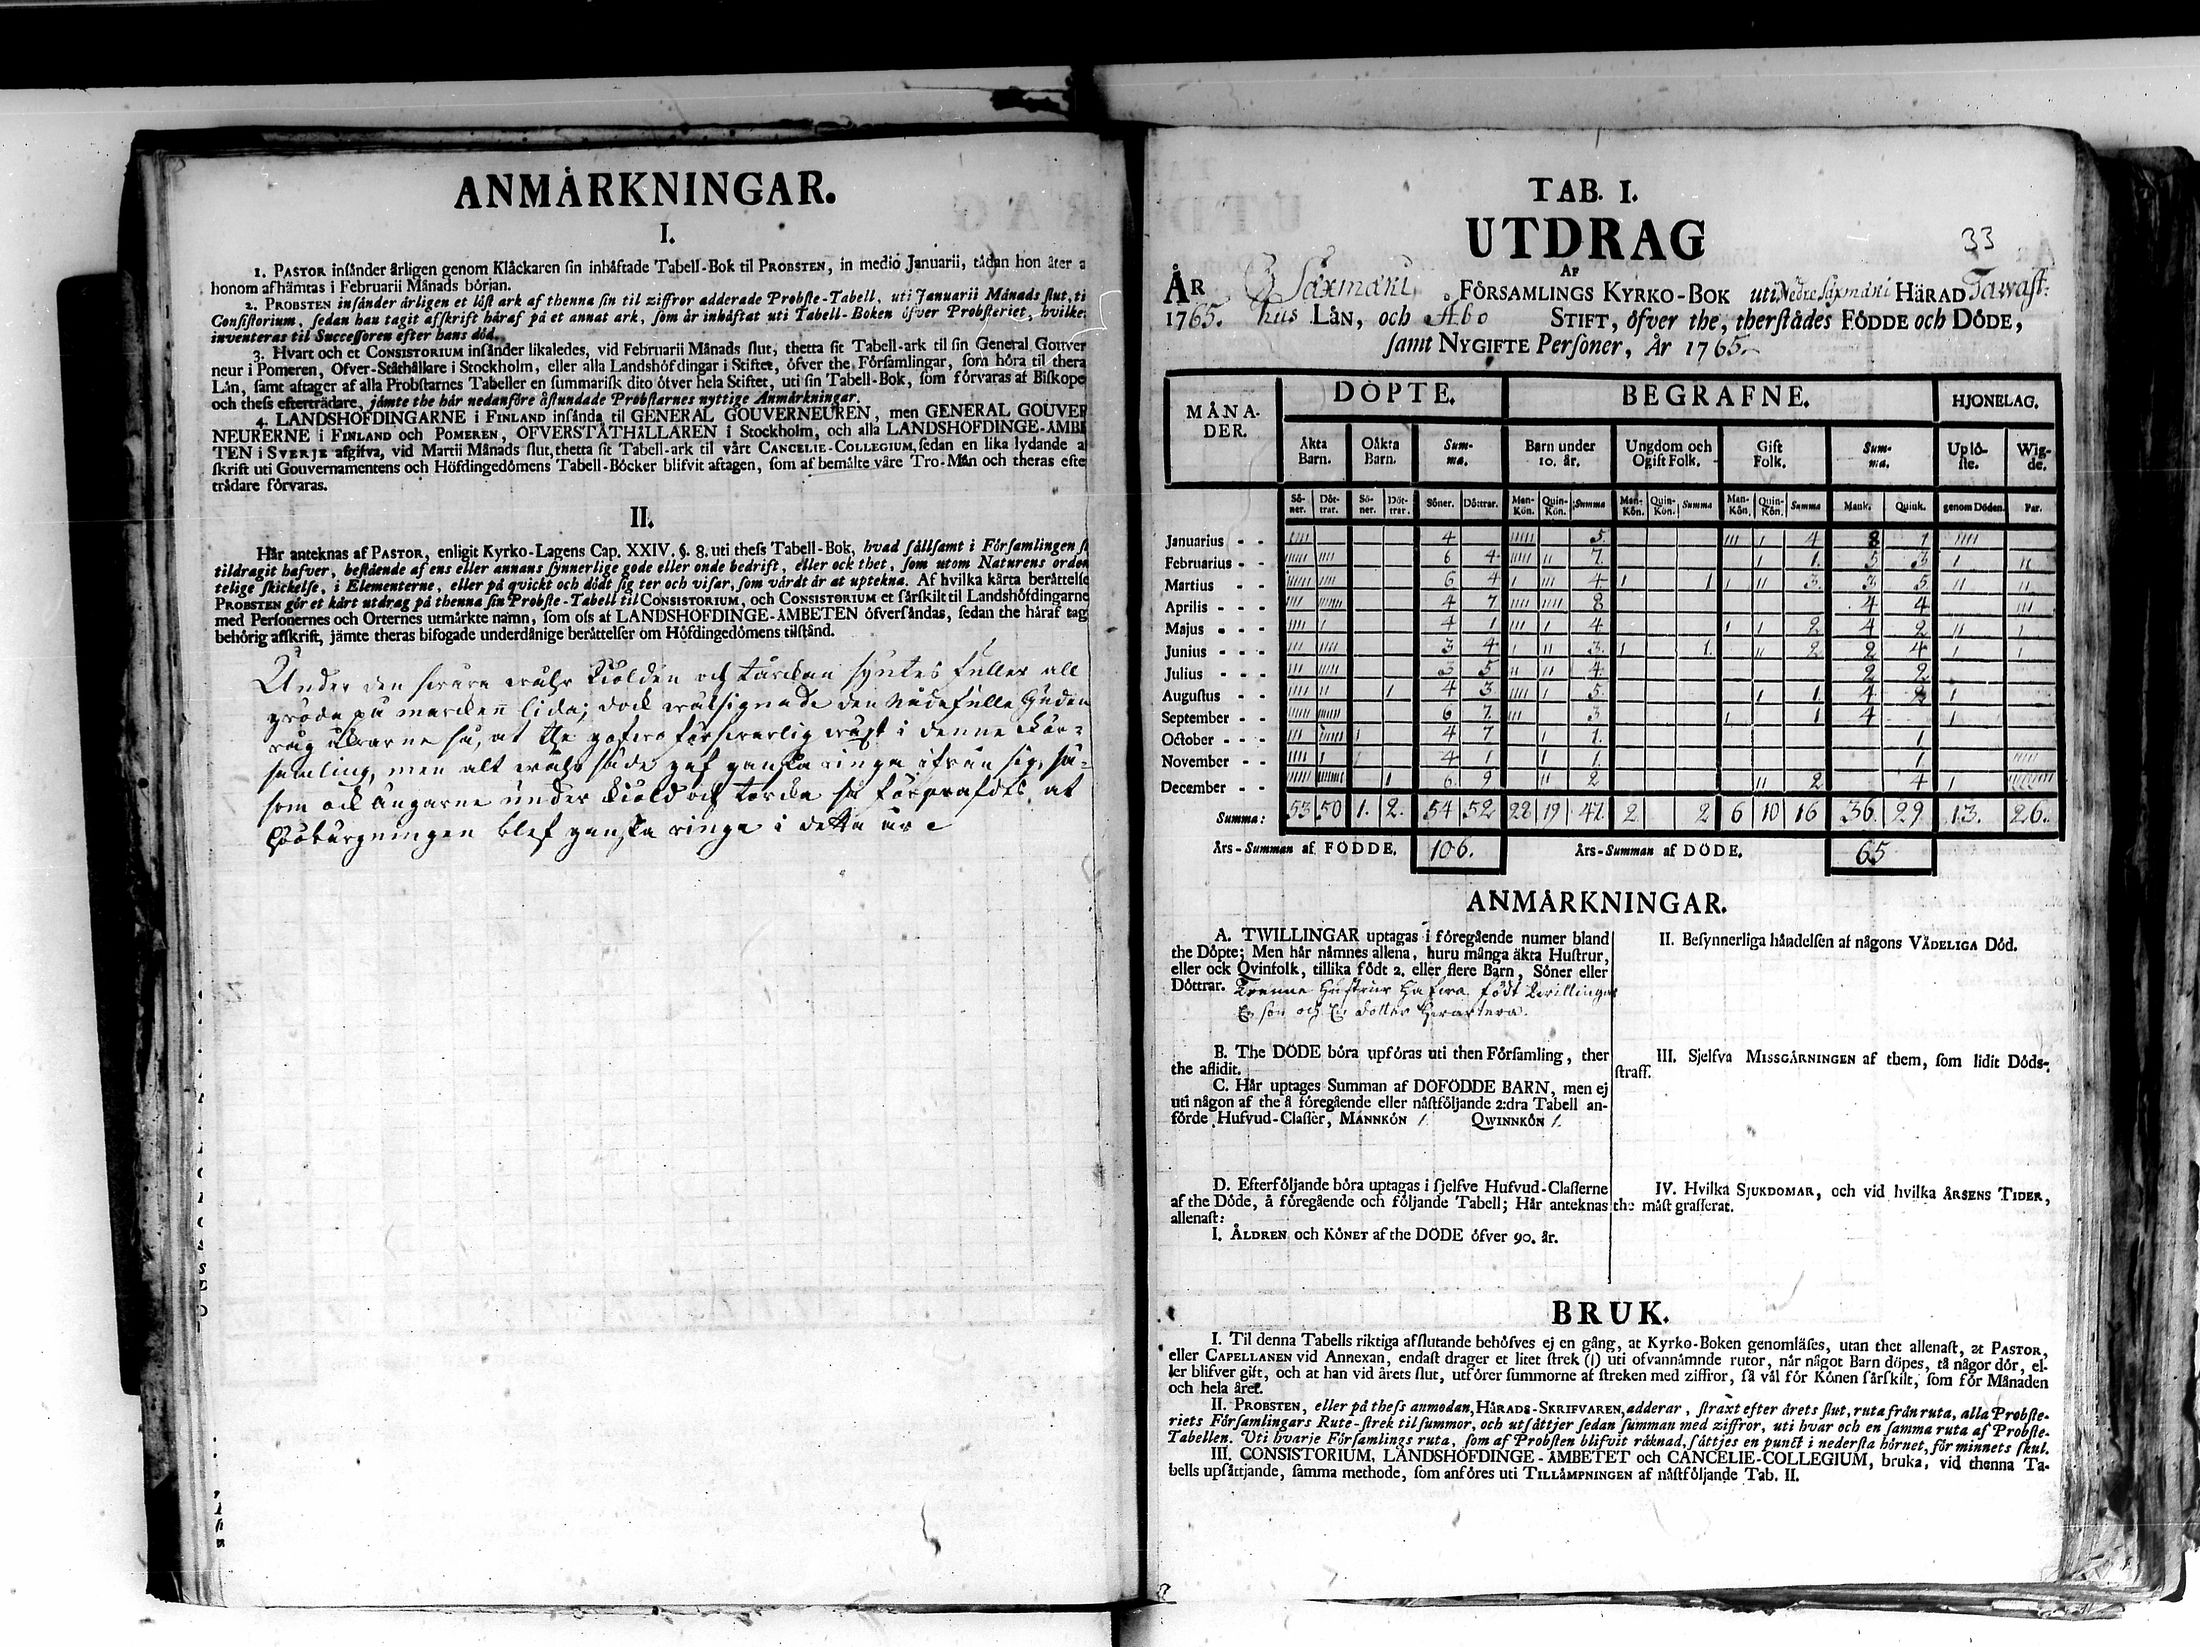 ANMÅRKNINGAR.
I.
1. PASTOR insånder årligen genom Klåckaren sin inhåftade Tabell-Bok til PROBSTEN, in medio Januarii, tådan hon åter a
honom afhämtas i Februarii Månads början.
2. PROBSTEN insånder årligen et löst ark af thenna sin til ziffror adderade Probste-Tabell, uti Januarii Månads slut, ti
Consistorium, sedan han tagit afskrift håraf på et annat ark, som år inhåftat uti Tabell-Boken öfver Probsteriet, hvilke
inventeras til Successoren efter hans död.
3. Hvart och et CONSISTORIUM insånder likaledes, vid Februarii Månads slut, thetta sit Tabell-ark til sin General Gouver
neur i Pomeren, Öfver-Ståthållare i Stockholm, eller alla Landshöfdingar i Stiftet, öfver the Församlingar, som höra til thera
Lån, samt aftager af alla Probstarnes Tabeller en summarisk dito öfver hela Stiftet, uti sin Tabell-Bok, som förvaras af Biskope
och thess efterträdare, jämte the hår nedanföre åstundade Probstarnes nyttige Anmärkningar.
4. LANDSHÖFDINGARNE i FINLAND insånda til GENERAL GOUVERNEUREN, men GENERAL GOUVER
NEURERNE i FINLAND och POMEREN, ÖFVERSTÅTHÅLLAREN i Stockholm, och alla LANDSHÖFDINGE-ÅMBE
TEN i SVERJE afgifva, vid Martii Månads slut, thetta sit Tabell-ark til vårt CANCELIE-COLLEGIUM, sedan en lika lydande a
skrift uti Gouvernamentens och Höfdingedömens Tabell-Böcker blifvit aftagen, som af bemålte våre Tro-Mån och theras efte
trådare förvaras.
II.
Hår anteknas af PASTOR, enligit Kyrko-Lagens Cap. XXIV. §. 8. uti thess Tabell-Bok, hvad sållsamt i Församlingen si
tildragit hafver, bestående af ens eller annans synnerlige gode eller onde bedrift, eller ock thet, som utom Naturens orden
telige skickelse, i Elementerne, eller på qvickt och dödt sig ter och visar, som vårdt år at uptekna. Af hvilka kårta beråttelse
PROBSTEN gör et kårt utdrag på thenna sin Probste-Tabell til CONSISTORIUM, och CONSISTORIUM et sårskilt til Landshöfdingarne
med Personernes och Orternes utmårkte namn, som oss af LANDSHÖFDINGE-ÅMBETEN öfversåndas, sedan the håraf tag
behörig afskrift, jämte theras bifogade underdånige beråttelser om Höfdingedömens tilstånd.
Under den swåra wåhr kiölden och tårckan syntes fuller all
gröda på marcken lida; dock wälsignade den Nådefulle Guden
råg åkrarne så, at the gofwo försswarlig wäxt i denne För-
samling, men alt wåhr säde gaf ganska ringa ifrån sig, så-
som ock ängarne under kiöld och torcka så at
Höbärgningen blef ganska ringa i detta år
TAB. I.
UTDRAG
33
AF
ÅR Saxmäki FÖRSAMLINGS KYRKO-BOK uti Nedre Saxmäki HÄRAD Tawast-
1765. hus LÅN, och Åbo STIFT, öfver the, therstådes FÖDDE och DÖDE,
samt NYGIFTE Personer, År 1765.
MÅNA-DER. DÖPTE. BEGRAFNE. HJONELAG.
Åkta Barn. Oåkta Barn. Sum-ma. Barn under 10. år. Ungdom och Ogift Folk. Gift Folk. Sum-ma. Uplö-ste. Wig-de.
Sö-ner. Döt-trar. Sö-ner. Döt-trar. Söner. Döttrar. Man-Kön. Quin-Kön. Summa Man-Kön. Quin-Kön. Summa Man-Kön. Quin-Kön. Summa Mank. Quink. genom Döden. Par.
Januarius - - 4 5. 4 8 1
Februarius - - 6 4 7. 1. 5 3
Martius - - 6 4 4 1 3. 3. 5
Aprilis - - - 4 7 8 4 4
Majus - - - 4 1 4 2 4 2
Junius - - - 3 4 3. 1. 2 2 4
Julius - - - 3 5 4. 2 2
Augustus - - 4 3 5. 1. 4 2
September - - 6 7. 3 1 4
October - - - 4 7 1. 1
November - - 4 1 1. 1.
December - - 6. 9 2 2 4
Summa: 53 50 1. 2. 54 52 28 19 47. 2 2 6 10 16 36. 29 13. 26.
Års-Summan af FÖDDE. 106. Års-Summan af DÖDE. 65
ANMÅRKNINGAR.
A. TWILLINGAR uptagas i föregående numer bland
the Döpte; Men hår nåmnes allena, huru många åkta Hustrur,
eller ock Qvinfolk, tillika födt 2. eller flere Barn, Söner eller
Döttrar. Twenne Hustrur hafwa födt twillingar
En son och En dotter hwardera.
B. The DÖDE böra upföras uti then Församling, ther
the aflidit.
C. Hår uptages Summan af DÖFÖDDE BARN, men ej
uti någon af the å föregående eller nåstföljande 2:dra Tabell an-
förde Hufvud-Classer, MANNKÖN 1 QWINNKÖN 1.
D. Efterföljande böra uptagas i sjelfve Hufvud-Classerne
af the Döde, å föregående och följande Tabell; Hår anteknas
allenast:
I. ÅLDREN och KÖNET af the DÖDE öfver 90. år.
II. Besynnerliga håndelsen af någons VÅDELIGA Död.
III. Sjelfva MISSGÅRNINGEN af them, som lidit Döds-
straff.
IV. Hvilka SJUKDOMAR, och vid hvilka ÅRSENS TIDER,
the måst grasserat.
BRUK.
I. Til denna Tabells riktiga afslutande behöfves ej en gång, at Kyrko-Boken genomläses, utan thet allenast, at PASTOR,
eller CAPELLANEN vid Annexan, endast drager et litet strek (|) uti ofvannåmnde rutor, når något Barn döpes, tå någor dör, el-
ler blifver gift, och at han vid årets slut, utförer summorne af streken med ziffror, så vål för Könen sårskilt, som för Månaden
och hela året.
II. PROBSTEN, eller på thess anmodan, HÅRADS-SKRIFVAREN, adderar, straxt efter årets slut, ruta från ruta, alla Probste-
riets Församlingars Rute-strek til summor, och utsåttjer sedan summan med ziffror, uti hvar och en samma ruta af Probste-
Tabellen. Uti hvarje Församlings ruta, som af Probsten blifvit råknad, såttjes en punct i nedersta hörnet, för minnets skul.
III. CONSISTORIUM, LANDSHÖFDINGE-ÅMBETET och CANCELIE-COLLEGIUM, bruka, vid thenna Ta-
bells upsåttjande, samma methode, som anföres uti TILLÅMPNINGEN af nåstföljande Tab. II.